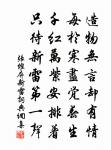 造物無言卻有情
每於寒盡覺春生
千紅萬紫安排著
只待新雷第一聲
張維屏新雷詞兵網臺